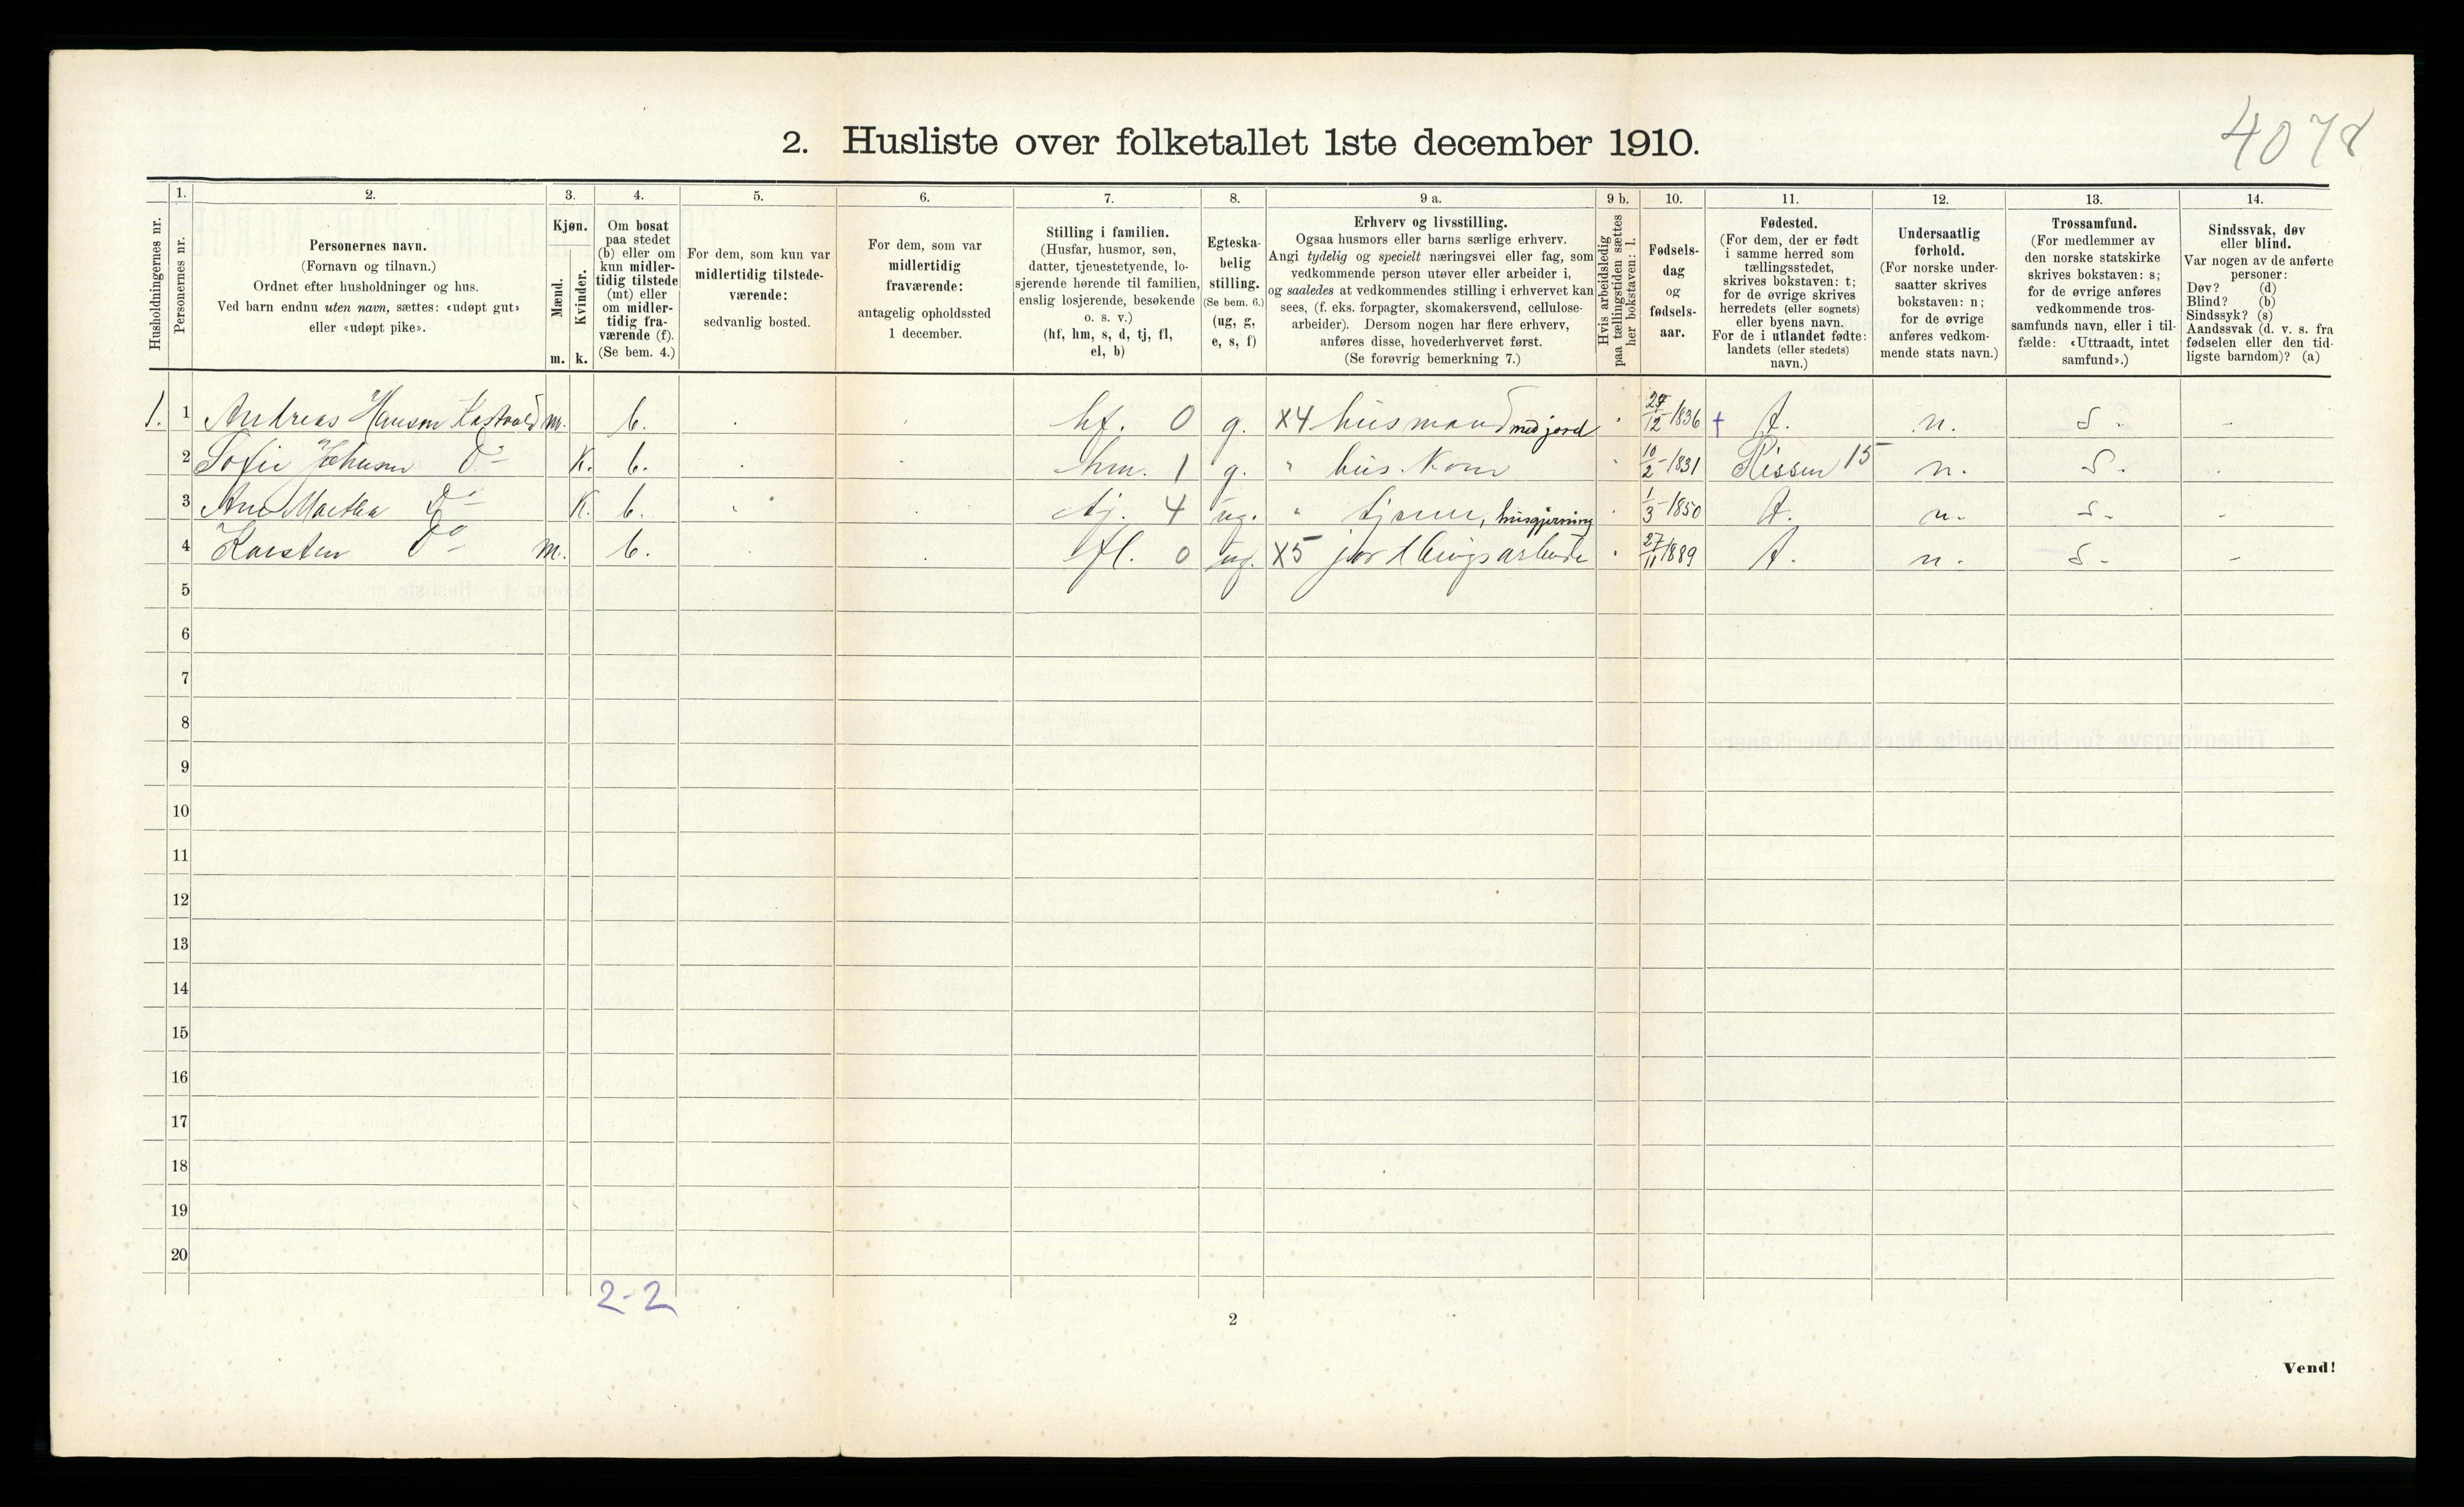 4078
2. Husliste over folketallet 1ste december 1910.
Husholdningernes nr.
1.
Personernes nr.
2.
Personernes navn.
(Fornavn og tilnavn.)
Ordnet efter husholdninger og hus.
Ved barn endnu uten navn, sættes: «udøpt gut»
eller «udøpt pike».
3.
Kjøn.
Mænd.
Kvinder.
m. k.
4.
Om bosat
paa stedet
(b) eller om
kun midler-
tidig tilstede
(mt) eller
om midler-
tidig fra-
værende (f).
(Se bem. 4.)
5.
For dem, som kun var
midlertidig tilstede-
værende:
sedvanlig bosted.
6.
For dem, som var
midlertidig
fraværende:
antagelig opholdssted
1 december.
7.
Stilling i familien.
(Husfar, husmor, søn,
datter, tjenestetyende, lo-
sjerende hørende til familien,
enslig losjerende, besøkende
o. s. v.)
(hf, hm, s, d, tj, fl,
el, b)
8.
Egteska-
belig
stilling.
(Se bem. 6.)
(ug, g,
e, s, f)
9 a.
Erhverv og livsstilling.
Ogsaa husmors eller barns særlige erhverv.
Angi tydelig og specielt næringsvei eller fag, som
vedkommende person utøver eller arbeider i,
og saaledes at vedkommendes stilling i erhvervet kan
sees, (f. eks. forpagter, skomakersvend, cellulose-
arbeider). Dersom nogen har flere erhverv,
anføres disse, hovederhvervet først.
(Se forøvrig bemerkning 7.)
9 b.
Hvis arbeidsledig
paa tællingstiden sættes
her bokstaven: l.
10.
Fødsels-
dag
og
fødsels-
aar.
11.
Fødested.
(For dem, der er født
i samme herred som
tællingsstedet,
skrives bokstaven: t;
for de øvrige skrives
herredets (eller sognets)
eller byens navn.
For de i utlandet fødte:
landets (eller stedets)
navn.)
12.
Undersaatlig
forhold.
(For norske under-
saatter skrives
bokstaven: n;
for de øvrige
anføres vedkom-
mende stats navn.)
13.
Trossamfund.
(For medlemmer av
den norske statskirke
skrives bokstaven: s;
for de øvrige anføres
vedkommende tros-
samfunds navn, eller i til-
fælde: «Uttraadt, intet
samfund».)
14.
Sindssvak, døv
eller blind.
Var nogen av de anførte
personer:
Døv? (d)
Blind? (b)
Sindssyk? (s)
Aandssvak (d. v. s. fra
fødselen eller den tid-
ligste barndom)? (a)
1. 1 Andreas Hansen m. b. hf. 0 g. X4 husmand med jord 12-1836 t. n. S. -
2 Sofie Johnsen Do K. b. hm. 1 g. " hus 10/2-1831 Rissen 15 n. S.
3 Ane Martha Do K. b. tj. 4 ug. " tjener, husgjerning 1/3-1850 t. n. S. -
4 Karsten Do m. b. fl. 0 ug. X5 27/11 1889 t. n. S. -
5
6
7
8
9
10
11
12
13
14
15
16
17
18
19
20
2-2
2
Vend!